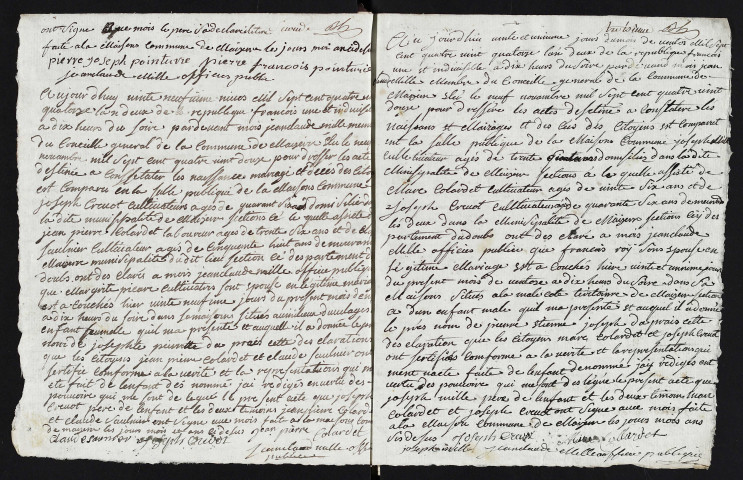 ont signe que mois le pere sudeclare
faite a la Maisons Commune de Maizerre les jours moi an
pierre joseph pointurre pierre francois pointurre
jeanclaude Mille officies publie
aujourd'hui vinte neufiéme nivos Mil Sept cent quatre
quatorze lan deux de la republique francois une et indivisible
a dix heurs du Soire pardevent mois jeanclaude Mille mem
du Conceille general de la Commune de Maizerre le neuf
novembre mil Sept cent quatre vint doux pour dresser les acte
destine a Constater les naissance mariage et deces des
est comparu en la Salle publique de la Maisons Commune
joseph Cruot Cultivateurs agés de quarant Six ans domicilié
la dite municipalite de Maizerre Sections et le quelle assiste
jean pierre Colardet laboureur agés de trente Six ans et de
Saulnier Cultivateur agés de Cinquente huit ans demeurans
Maizerre municipalite du dit lieu Section et departement
doubs ont des claré a mois jeanclaude Mille officies publique
que Margrite pierre Cultivateur sont Spouse en legitime
est a Couchée hier vinte neufiéme jours du present mois
a dix heurs du Soire dans Semaisons Situés au milieux du vilages
enfant femalle quil ma presente et auquelle il a donnée le
noms de josephte pierrette da prés cette des claration
que les Citoyens jean pierre Colardet et claude Saulnier ont
Certifie Comforme a la verite et la representations qui
ete fait de lenfant des nommé jai redigés en vertu des
pouvoire qui me sont de legue le present acte que joseph
Cruot pere de lenfant et les deux temoins jean pierre Colardet
et claude Saulnier ont Signe aux mois fait a la maison
de mayerre les jours mois et ans et desus jean pierre Colardet
Claude saunier joseph Cruot
jeanclaude mille offi
publique
aujourd'hui vinte et unieme jours du mois de ventos Mil Sept
cent quatre vint quatorze lan deux de la republique francois
une et indivisible a dix heurs du Soire pardevent mois jean
claude Mille Membre du Conceille general de la Commune de
Maizerre elu le neuf novembre mil Sept cent quatre vint
douze pour dressere les actes destine a Constatere les
naissans et Mairages et des Ces des Citoyens est Comparent
en la Salle publique de la Maisons Commune joseph Mille
Cultivateur agés de trente ans domiciliés dans la dite
Municipalite de Maizerre Sections a le quelle assiste de
Marc Colardet Cultivateur agés de vinte Six ans et de
joseph Cruot Cultivateur agés de quarante Six ans demeurans
les deux dans la Municipalite de Maizerre Sections et des
partement du doubs ont des claré a mois jeanclaude
Mille officies publique que francois roy Sons Spouse en
legitime Mairiage est a Couchés hier vinte et unieme jours
du present mois de ventose a dix heurs du Soire dans Sa
Maisons Situés a la male cote teritoire de Maizerre Section
a dun enfant male quil ma presente et auquel il a donnée
le prés nom de pierre etienne joseph da prais cette
des claration que les Citoyens marc Colardet et joseph Cruot
ont Certifiés Comforme a la verite et la representation qui
ment nacle faite de lenfant denommé jay redigés en
vertu des pouvoire qui me sont des legue le present acte que
joseph mille pere de lenfant et les deux temoins Marc
Colardet et joseph Cruot ont Signe aux mois faite
a la Maisson Commune de Maizerre les jours mois ans
Sis desus joseph Cruot marc Colardet
joseph mille jeanclaude Mille officies publique